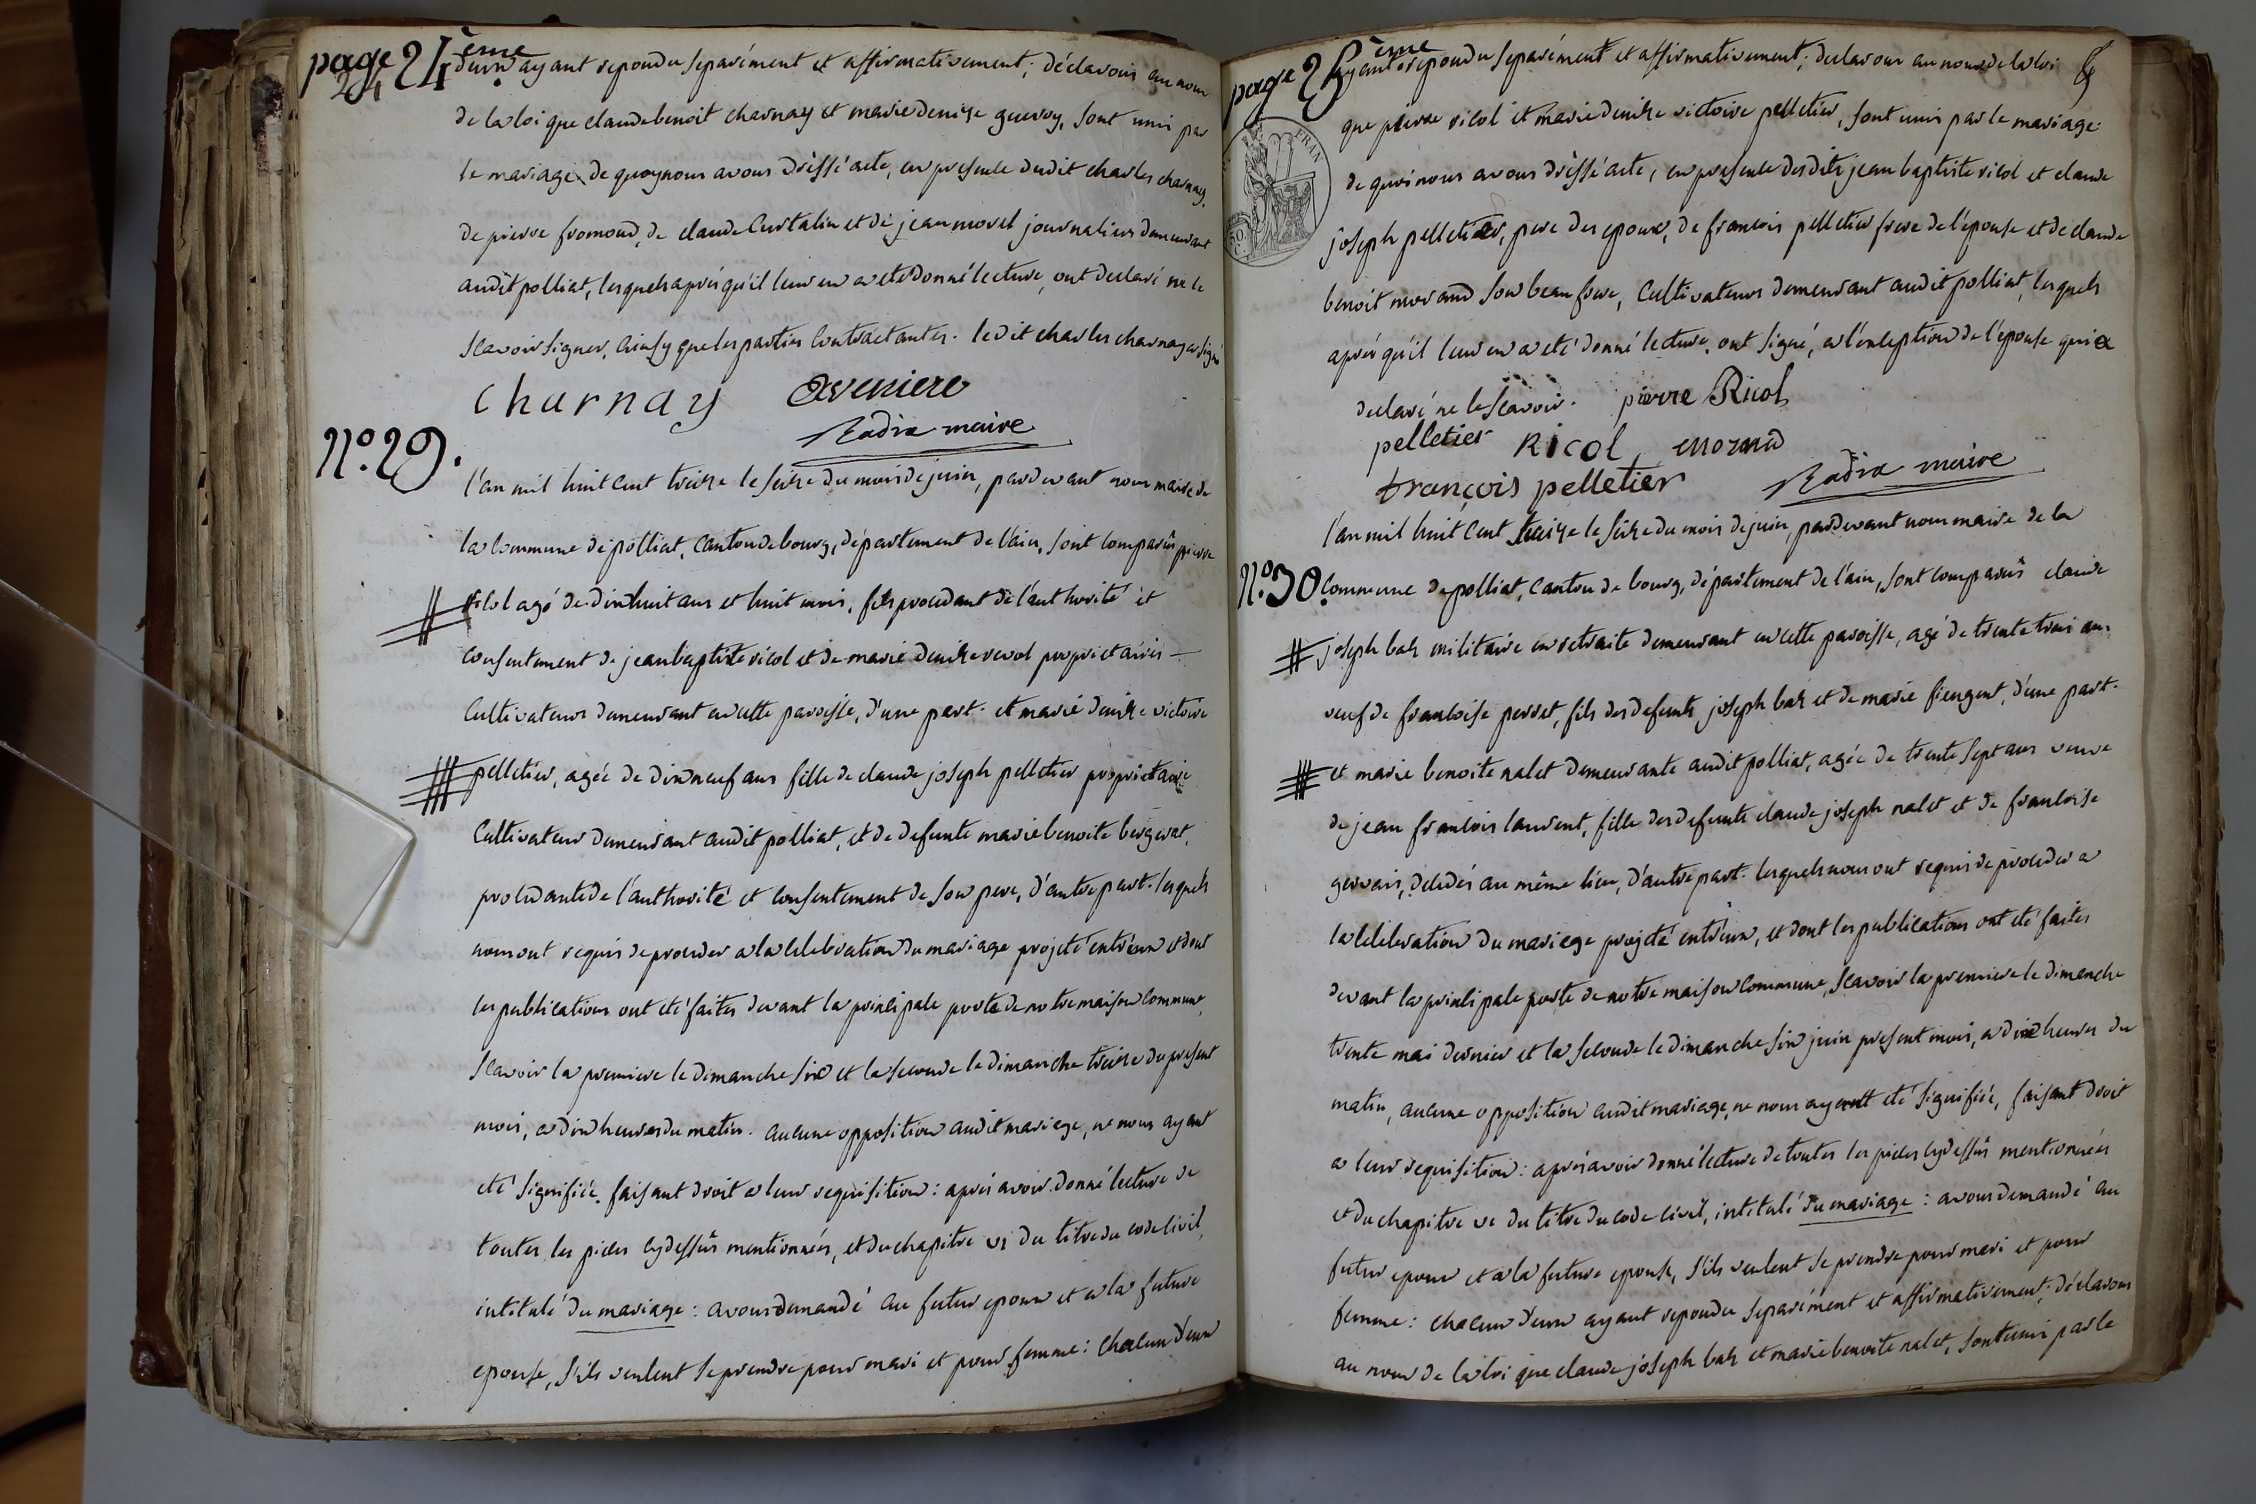 page 24ème
24
d'eux ayant repondu separément et affirmativement; déclarons au nom
de la loi que claude benoit charnay et marie denise guerey, sont unis par
le mariage. De quoy nous avons dressé acte, en presence dudit charles charnay,
de pierre fromond, de claude Curtalin et de jean morel journaliers demeurant
audit polliat, lesquels après qu'il leur en a eté donné lecture, ont declaré ne le
scavoir signer, ainsy que les parties Contractantes. ledit charles charnay a signé
Charnay aveniere
Radix maire
N.º 29.
l'an mil huit cent treize le seize du mois de juin, pardevant nous maire de
la Commune de polliat, Canton de bourg, département de l'ain, sont comparûs pierre
ricol agé de dix huit ans et huit mois, fils procedant de l'authorité et
consentement de jean baptiste ricol et de marie denise revol proprietaires —
Cultivateurs demeurant en cette paroisse, d'une part. et marie denise victoire
pelletier, agée de dix neuf ans fille de claude joseph pelletier proprietaire
Cultivateur demeurant audit polliat, et de defunte marie benoite bergerat,
procedante de l'authorité et consentement de son pere, d'autre part. lesquels
nous ont requis de proceder a la celebration du mariage projeté entr'eux et dont
les publications ont eté faites devant la principale porte de notre maison Commune,
Scavoir la premiere le dimanche six et la seconde le dimanche treize du present
mois, a dix heures du matin. aucune opposition audit mariage, ne nous ayant
eté signifiée, faisant droit a leur requisition: après avoir donné lecture de
toutes les pieces cydessûs mentionnées, et du chapitre vi du titre du code Civil,
intitulé du mariage: avons demandé au futur epoux et a la future
epouse, s'ils veulent se prendre pour mari et pour femme: chacun d'eux
page 25ème
ayant repondu separément et affirmativement; declarons au nom de la loi
que pierre ricol et marie denise victoire pelletier, sont unis par le mariage:
de quoi nous avons dressé acte, en presence desdits jean baptiste ricol et claude
joseph pelletier, pere des epoux, de francois pelletier frere de l'épouse et de claude
benoit morand son beau frere, Cultivateurs demeurant audit polliat, lesquels
après qu'il leur en a eté donné lecture, ont signé, a l'exception de l'épouse qui a
declaré ne le scavoir. pierre Ricol
pelletier Ricol morand
françois pelletier Radix maire
l'an mil huit Cent treize le seize du mois de juin, pardevant nous maire de la
N.º 30. Commune de polliat, Canton de bourg, département de l'ain, sont comparûs claude
joseph bah militaire en retraite demeurant en cette paroisse, agé de trente trois ans
veuf de francoise perret, fils des defunts joseph bah et de marie fieugent, d'une part.
et marie benoite nalet demeurante audit polliat, agée de trente sept ans veuve
de jean francois laurent, fille des defunts claude joseph nalet et de francoise
gervais, décédés au même lieu, d'autre part. lesquels nous ont requis de proceder a
la celebration du mariage projeté entr'eux, et dont les publications ont eté faites
devant la principale porte de notre maison Commune, Scavoir la premiere le dimanche
trente mai dernier et la seconde le dimanche six juin present mois, a dix heures du
matin, aucune opposition audit mariage, ne nous ayant eté signifiée, faisant droit
a leur requisition: après avoir donné lecture de toutes les pieces cydessûs mentionnées
et du chapitre vi du titre du code Civil, intitulé du mariage: avons demandé au
futur epoux et a la future epouse, s'ils veulent se prendre pour mari et pour
femme: chacun d'eux ayant repondu separément et affirmativement; déclarons
au nom de la loi que claude joseph bah et marie benoite nalet, sont unis par le